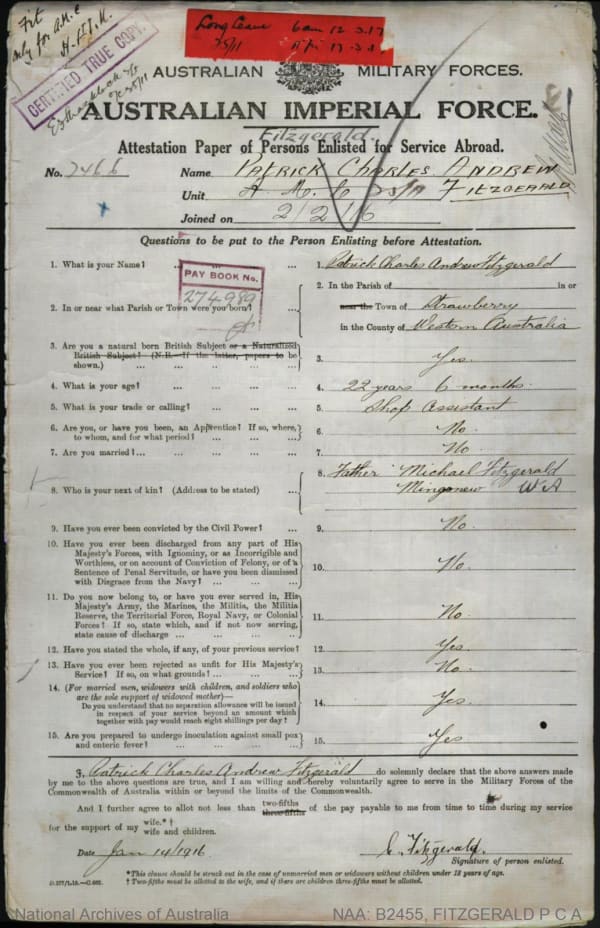 Fit
only for A.M.C
CERTIFIED TRUE COPY.
Long Leave 6am 12.3.17
AUSTRALIAN MILITARY FORCES.
AUSTRALIAN IMPERIAL FORCE.
Fitzgerald.
Attestation Paper of Persons Enlisted for Service Abroad.
No. 7466 Name PATRICK CHARLES ANDREW
Unit A. M. C FITZGERALD
Joined on 2/2/16
Questions to be put to the Person Enlisting before Attestation.
1. What is your Name? ... ... ... 1. Patrick Charles Andrew Fitzgerald
PAY BOOK No.
274989
2. In or near what Parish or Town were you born? 2. In the Parish of in or
near the Town of Strawberry
in the County of Western Australia
3. Are you a natural born British Subject or a Naturalized
British Subject? (N.B.—If the latter, papers to be
shown.) ... ... ... 3. Yes.
4. What is your age? ... ... ... 4. 22 years 6 months.
5. What is your trade or calling? ... ... ... 5. Shop Assistant
6. Are you, or have you been, an Apprentice? If so, where,
to whom, and for what period? ... ... 6. No.
7. Are you married?... ... ... ... 7. No.
8. Who is your next of kin? (Address to be stated) ... 8. Father Michael Fitzgerald
Mingenew WA
9. Have you ever been convicted by the Civil Power? ... 9. No.
10. Have you ever been discharged from any part of His
Majesty's Forces, with Ignominy, or as Incorrigible and
Worthless, or on account of Conviction of Felony, or of a
Sentence of Penal Servitude, or have you been dismissed
with Disgrace from the Navy? ... ... ... 10. No.
11. Do you now belong to, or have you ever served in, His
Majesty's Army, the Marines, the Militia, the Militia
Reserve, the Territorial Force, Royal Navy, or Colonial
Forces? If so, state which, and if not now serving,
state cause of discharge ... ... ... 11. No.
12. Have you stated the whole, if any, of your previous service? 12. Yes.
13. Have you ever been rejected as unfit for His Majesty's
Service? If so, on what grounds? ... ... 13. No.
14. (For married men, widowers with children, and soldiers who
are the sole support of widowed mother)—
Do you understand that no separation allowance will be issued
in respect of your service beyond an amount which
together with pay would reach eight shillings per day? 14. Yes.
15. Are you prepared to undergo inoculation against small pox
and enteric fever? ... ... ... 15. Yes
I, Patrick Charles Andrew Fitzgerald do solemnly declare that the above answers made
by me to the above questions are true, and I am willing and hereby voluntarily agree to serve in the Military Forces of the
Commonwealth of Australia within or beyond the limits of the Commonwealth.
And I further agree to allot not less than two-fifths three-fifths of the pay payable to me from time to time during my service
for the support of my wife.*† wife and children.
Date Jan 14/1916 C. Fitzgerald.
Signature of person enlisted.
*This clause should be struck out in the case of unmarried men or widowers without children under 18 years of age.
† Two-fifths must be allotted to the wife, and if there are children three-fifths must be allotted.
National Archives of Australia NAA: B2455, FITZGERALD P C A